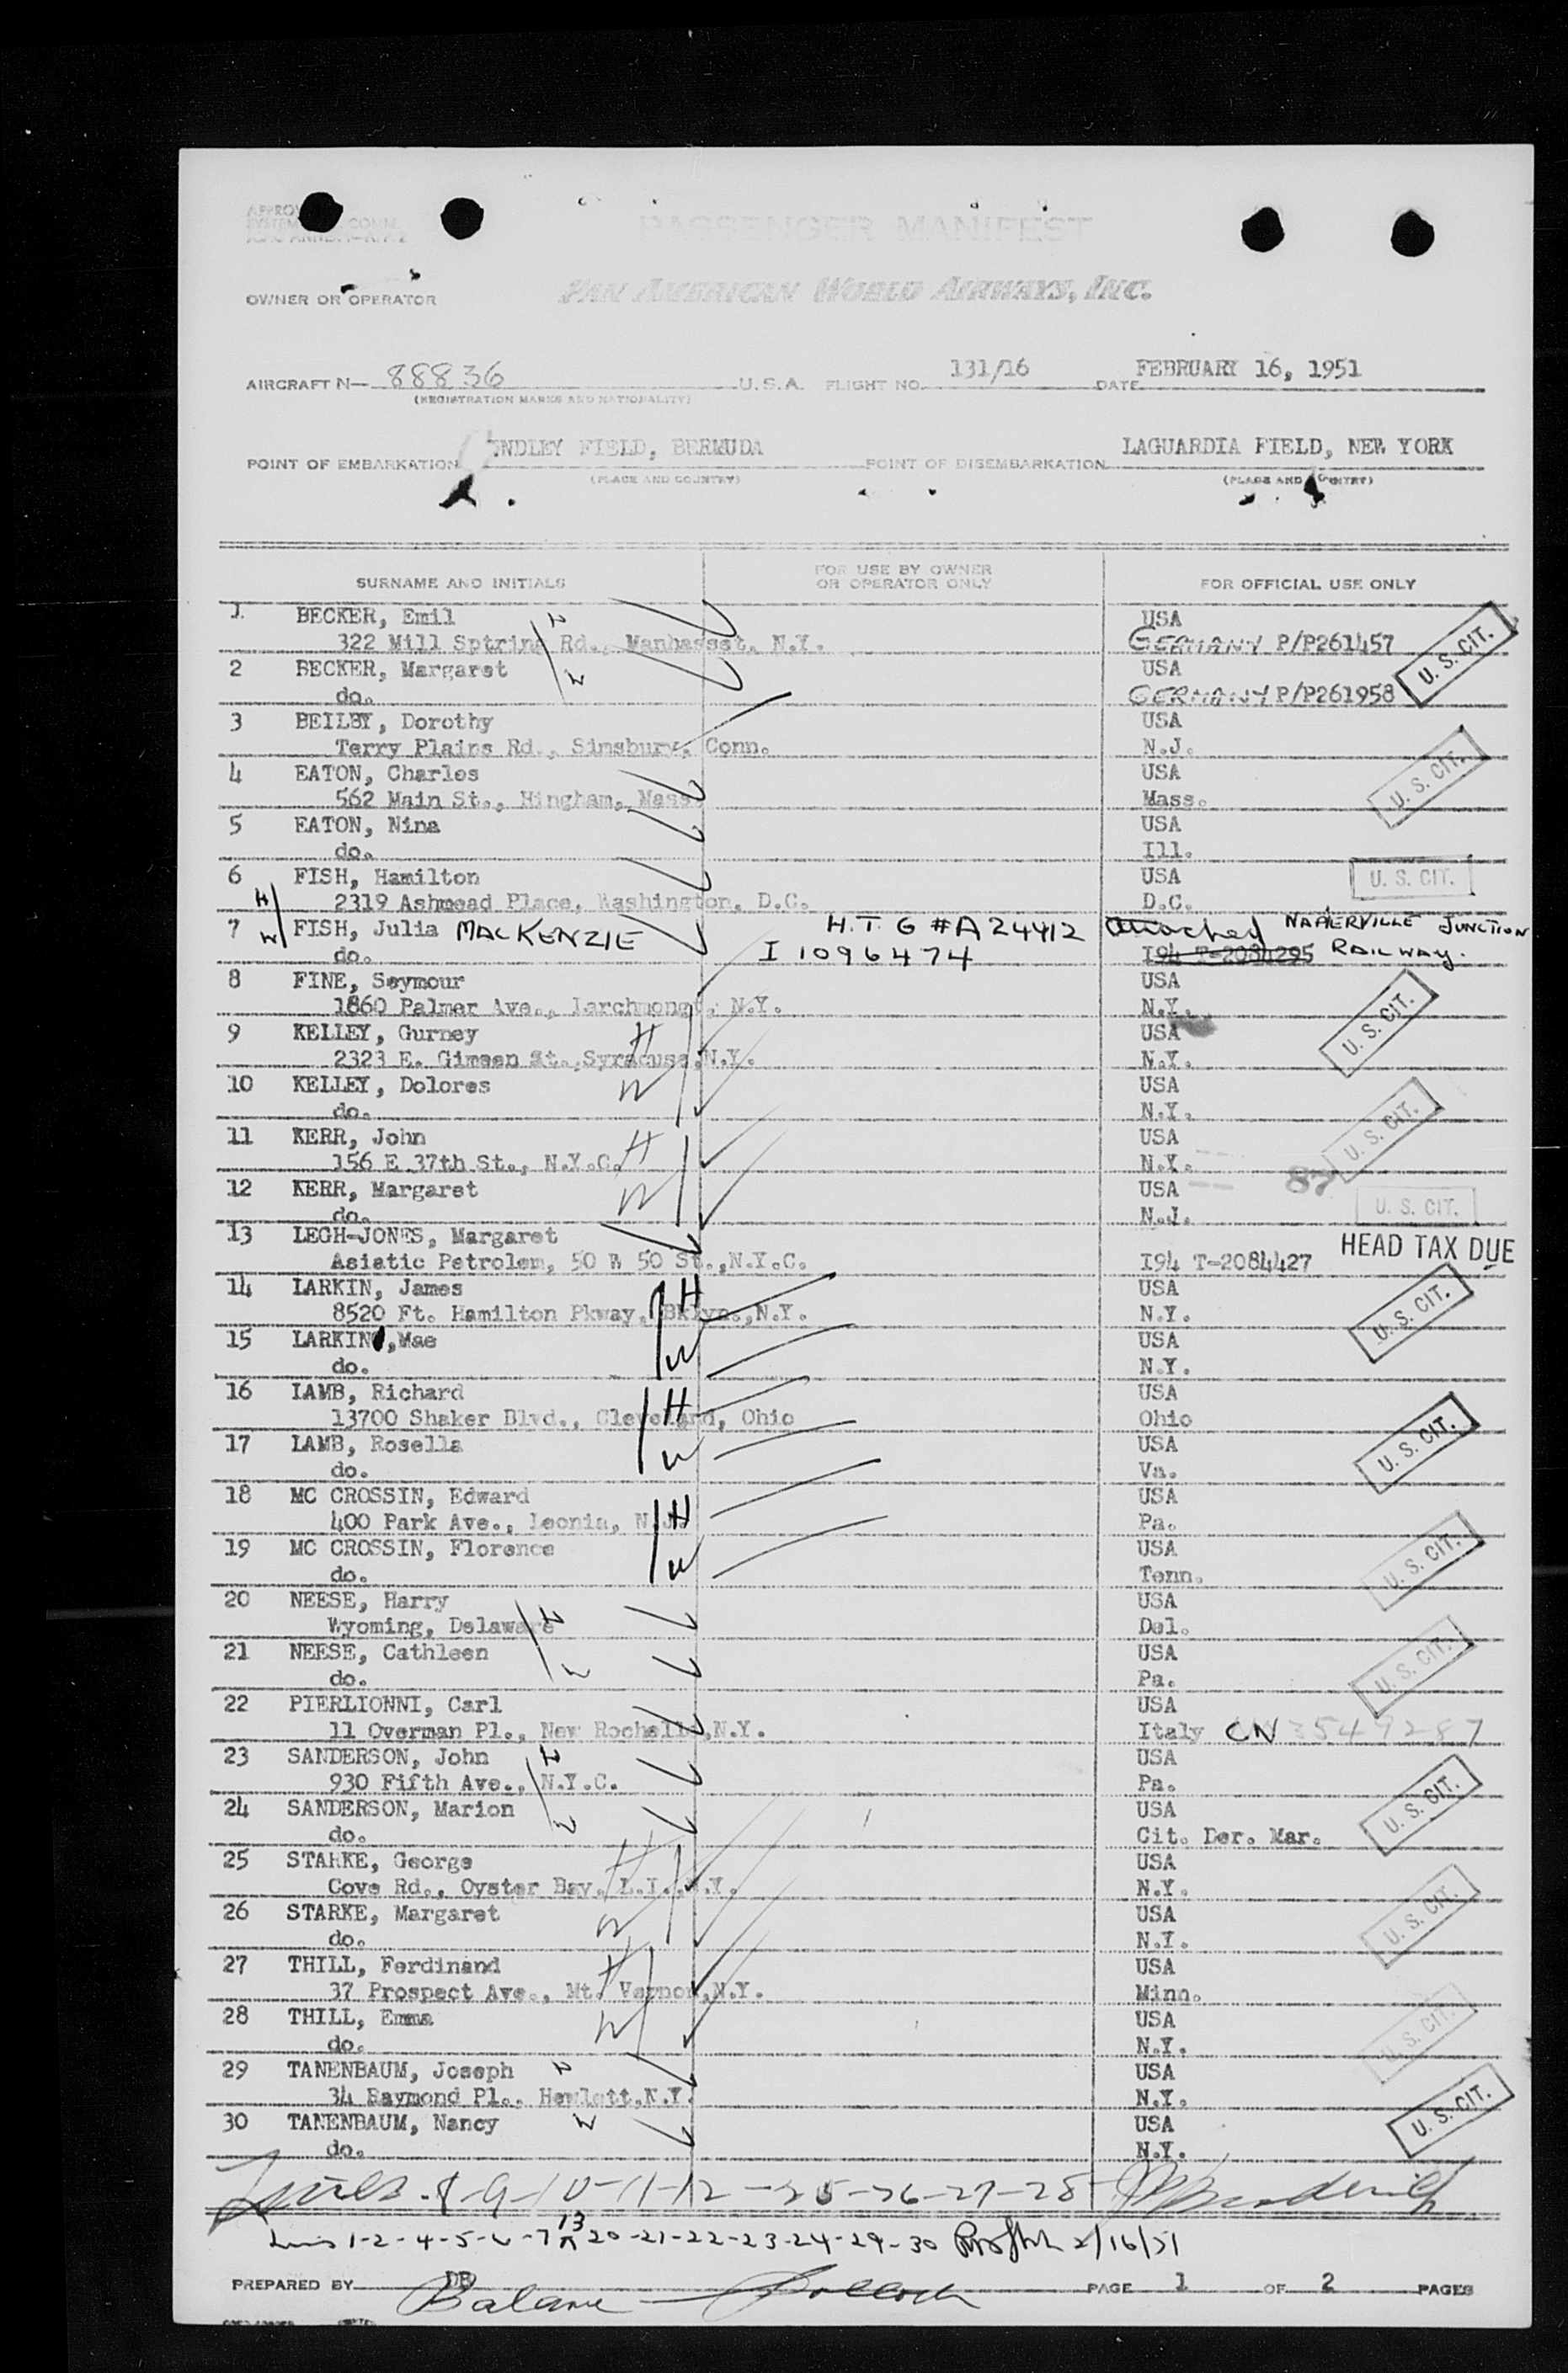 PASSENGER MANIFEST
OWNER OR OPERATOR PAN AMERICAN WORLD AIRWAYS, INC.
AIRCRAFT N— 88836 U.S.A. FLIGHT NO. 131/16 DATE FEBRUARY 16, 1951
(REGISTRATION MARKS AND NATIONALITY)
POINT OF EMBARKATION NDLEY FIELD, BERMUDA POINT OF DISEMBARKATION LAGUARDIA FIELD, NEW YORK
(PLACE AND COUNTRY) (PLACE AND COUNTRY)
SURNAME AND INITIALS FOR USE BY OWNER OR OPERATOR ONLY FOR OFFICIAL USE ONLY
1 BECKER, Emil USA
322 Mill Sptring Rd., Manhasset, N.Y. GERMANY P/P261457 U. S. CIT.
2 BECKER, Margaret USA
do. GERMANY P/P261958
3 BEILBY, Dorothy USA
Terry Plains Rd., Simsbury, Conn. N.J.
4 EATON, Charles USA U. S. CIT.
562 Main St., Hingham, Mass. Mass.
5 EATON, Nina USA
do. Ill.
6 FISH, Hamilton USA U. S. CIT.
2319 Ashmead Place, Washington, D.C. D.C.
7 FISH, Julia MACKENZIE H.T. 6 #A24412 Attached NAPIERVILLE JUNCTION
do. I 1096474 I94 T-2084295 RAILWAY.
8 FINE, Seymour USA
1860 Palmer Ave., Larchmongt, N.Y. N.Y.
9 KELLEY, Gurney H USA U. S. CIT.
2323 E. Gimeen St., Syracuse, N.Y. N.Y.
10 KELLEY, Dolores W USA
do. N.Y.
11 KERR, John H USA U. S. CIT.
156 E 37th St., N.Y.C. N.Y.
12 KERR, Margaret W USA 87
do. N.J. U. S. CIT.
13 LEGH-JONES, Margaret HEAD TAX DUE
Asiatic Petrolem, 50 W 50 St., N.Y.C. I94 T-2084427
14 LARKIN, James H USA
8520 Ft. Hamilton Pkway, Bklyn., N.Y. N.Y. U. S. CIT.
15 LARKIN, Mae W USA
do. N.Y.
16 LAMB, Richard H USA
13700 Shaker Blvd., Cleveland, Ohio Ohio
17 LAMB, Rosella W USA U. S. CIT.
do. Va.
18 MC CROSSIN, Edward H USA
400 Park Ave., Leonia, N.J. Pa.
19 MC CROSSIN, Florence W USA U. S. CIT.
do. Tenn.
20 NEESE, Harry H USA
Wyoming, Delaware Del.
21 NEESE, Cathleen W USA U. S. CIT.
do. Pa.
22 PIERLIONNI, Carl USA
11 Overman Pl., New Rochelle, N.Y. Italy CN 3549287
23 SANDERSON, John H USA
930 Fifth Ave., N.Y.C. Pa.
24 SANDERSON, Marion W USA U. S. CIT.
do. Cit. Der. Mar.
25 STARKE, George H USA
Cove Rd., Oyster Bay, L.I., N.Y. N.Y.
26 STARKE, Margaret W USA U. S. CIT.
do. N.Y.
27 THILL, Ferdinand H USA
37 Prospect Ave., Mt. Vernon, N.Y. Minn.
28 THILL, Emma W USA U. S. CIT.
do. N.Y.
29 TANENBAUM, Joseph H USA
34 Raymond Pl., Hewlett, N.Y. N.Y.
30 TANENBAUM, Nancy W USA U. S. CIT.
do. N.Y.
Lines 8-9-10-11-12-25-26-27-28
Lines 1-2-4-5-6-7 13 20-21-22-23-24-29-30 2/16/51
PREPARED BY DB PAGE 1 OF 2 PAGES
Balance